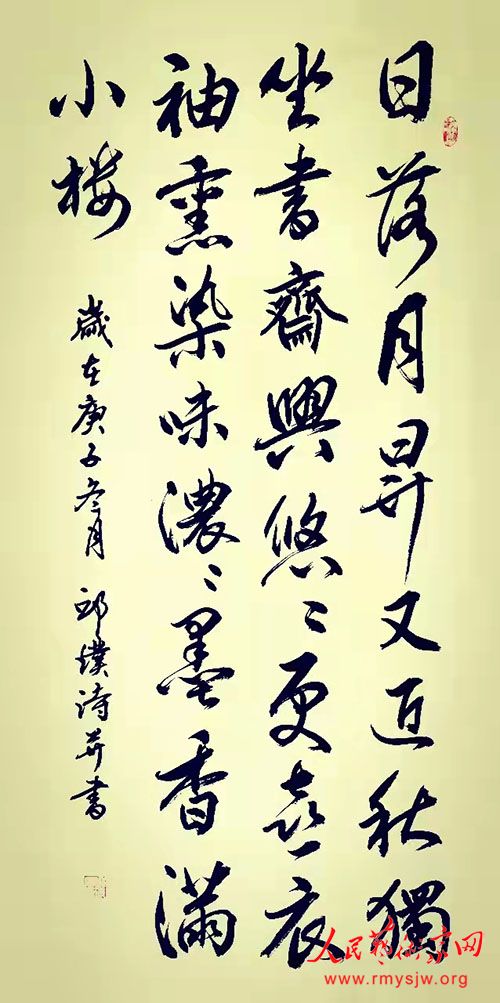 日落月昇又近秋獨
坐書齋興悠〻更喜衣
袖熏染味濃〻墨香滿
小楼
歲在庚子冬月 邱璞詩并書
人民艺术家网
www.rmysjw.org